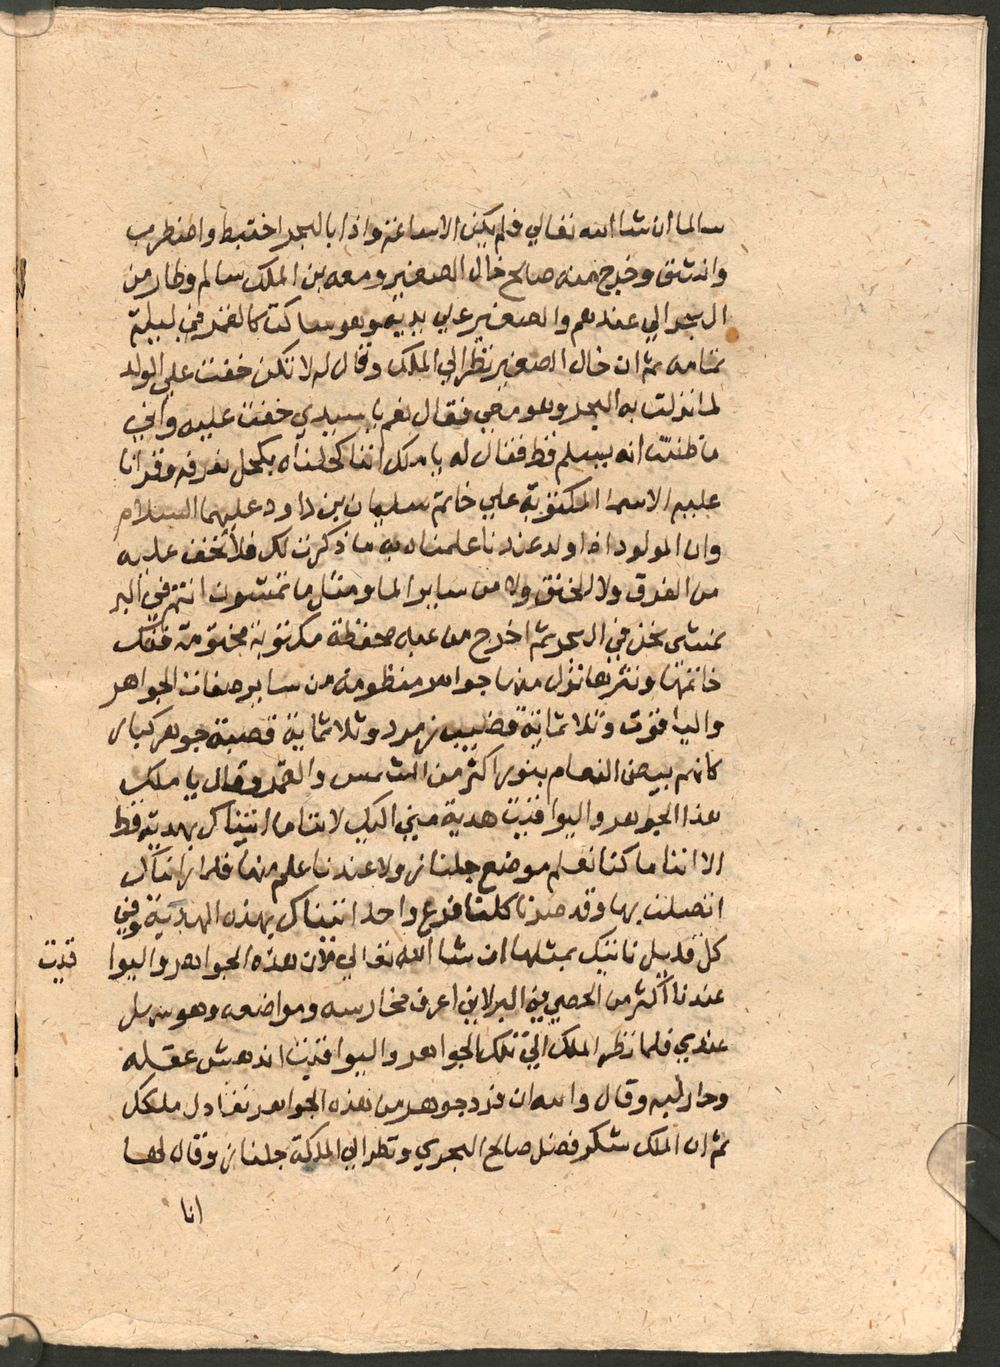 سالما ان شا الله تعالي فلم يكن الا ساعة واذا بالبحر اختبط واضطرب
وانشق وخرج منه صالح خال الصغير ومعه بن الملك سالم وطار من
البحر الي عندهم والصغير علي يديه وهو ساكت كالقمر في ليلة
تمامه ثم ان خال الصغير نظر الي الملك وقال له لا تكن خفت علي الولد
لما نزلت به البحر وهو معي فقال نعم يا سيدي خفت عليه واني
ما ظننت انه يسلم قط فقال له يا ملك اننا كحلناه بكحل نعرفه وقرانا
عليه الاسما المكتوبة علي خاتم سليمان بن داود عليهما السلام
وان المولود اذا ولد عندنا علمنا به ما ذكرت لك فلا تخف عليه
من الغرق ولا الخنق ولا من ساير الما ومثل ما تمشون انتم في البر
نمشي نحن في البحر ثم اخرج من عبه محفظة مكتوبة مختومة ففك
خاتمها ونثرها نزل منها جواهر منظومة من ساير صفات الجواهر
والياقوت وثلاثماية قضيب زمرد وثلاثماية قصبة جوهر كبار
كانهم بيض النعام بنور اكثر من الشمس والقمر وقال يا ملك
هذا الجوهر واليواقيت هدية مني اليك لاننا ما اتيناك بهدية قط
الا اننا ما كنا نعلم موضع جلنار ولا عندنا علم منها فلما رايناك
اتصلت بها وقد صرنا كلنا فرع واحد اتيناك بهذه الهدية وفي
كل قليل ناتيك بمثلها ان شا الله تعالي لان هذه الجواهر واليوا قيت
عندنا اكثر من الحصي في البر لاني اعرف مخارسه ومواضعه وهو سهل
عندي فلما نظر الملك الي تلك الجواهر واليواقيت اندهش عقله
وحار لبه وقال والله ان فرد جوهر من هذه الجواهر تعادل ملكك
ثم ان الملك شكر فضل صالح البحري ونظر الي الملكة جلنار وقال لها
انا